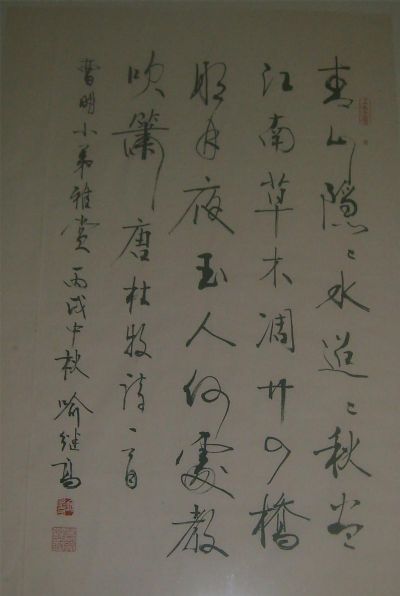 青山隐〻水迢〻秋尽
江南草木凋廿四橋
明月夜玉人何處教
吹簫 唐杜牧詩一首
明小弟雅赏 丙戌中秋 喻继高